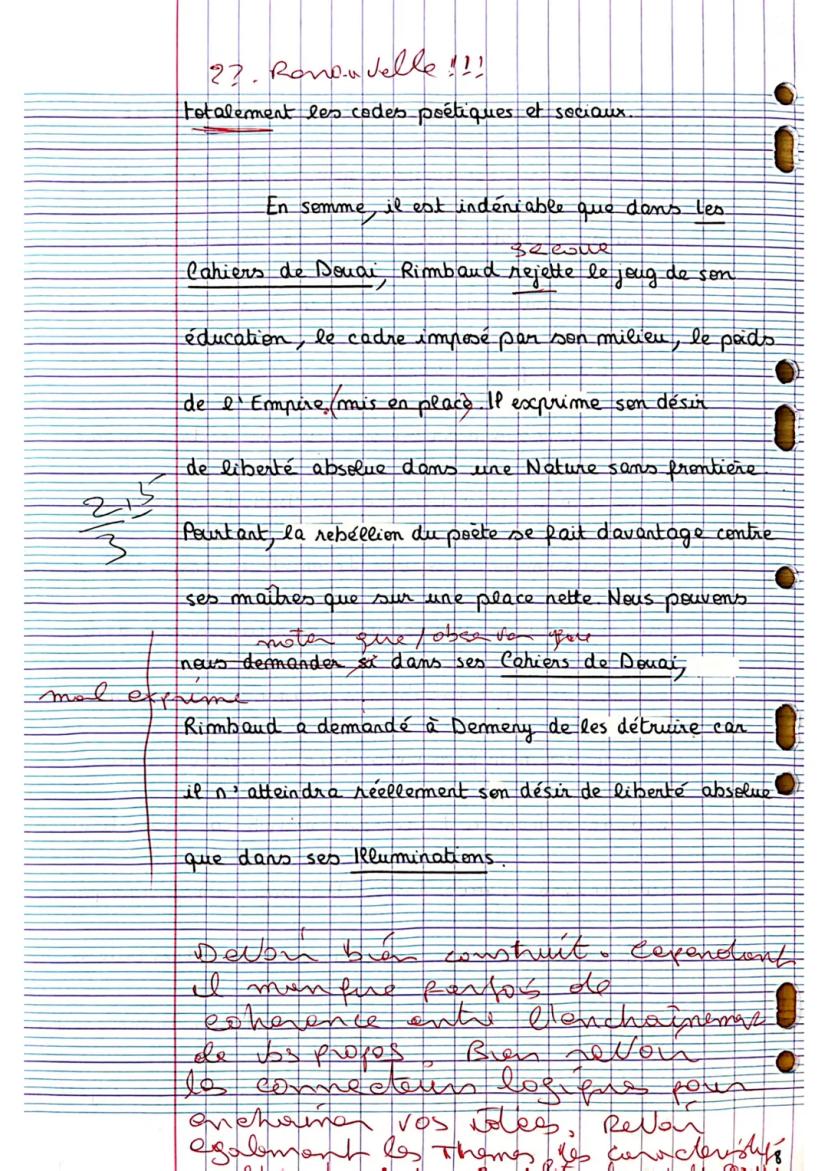 ??. Ronouvelle !!!
totalement les codes poétiques et sociaux.
En somme, il est indéniable que dans les
secoue
Cahiers de Douai, Rimbaud rejette le joug de son
éducation, le cadre imposé par son milieu, le poids
de l'Empire (mis en place). Il exprime son désir
de liberté absolue dans une Nature sans frontière.
2,5
3
Pourtant, la rebéllion du poète se fait davantage contre
ses maîtres que sur une place nette. Nous pouvons
noter que / observer que
nous demander si dans ses Cahiers de Douai,
mal exprimé
Rimbaud a demandé à Demeny de les détruire car
il n'atteindra réellement son désir de liberté absolue
que dans ses Illuminations.
Devoir bien construit. Cependant
il manque parfois de
coherence entre l'enchaînement
de vos propos. Bien revoir
les connecteurs logiques pour
enchainer vos idées. Revoir
egalement les themes, les
8